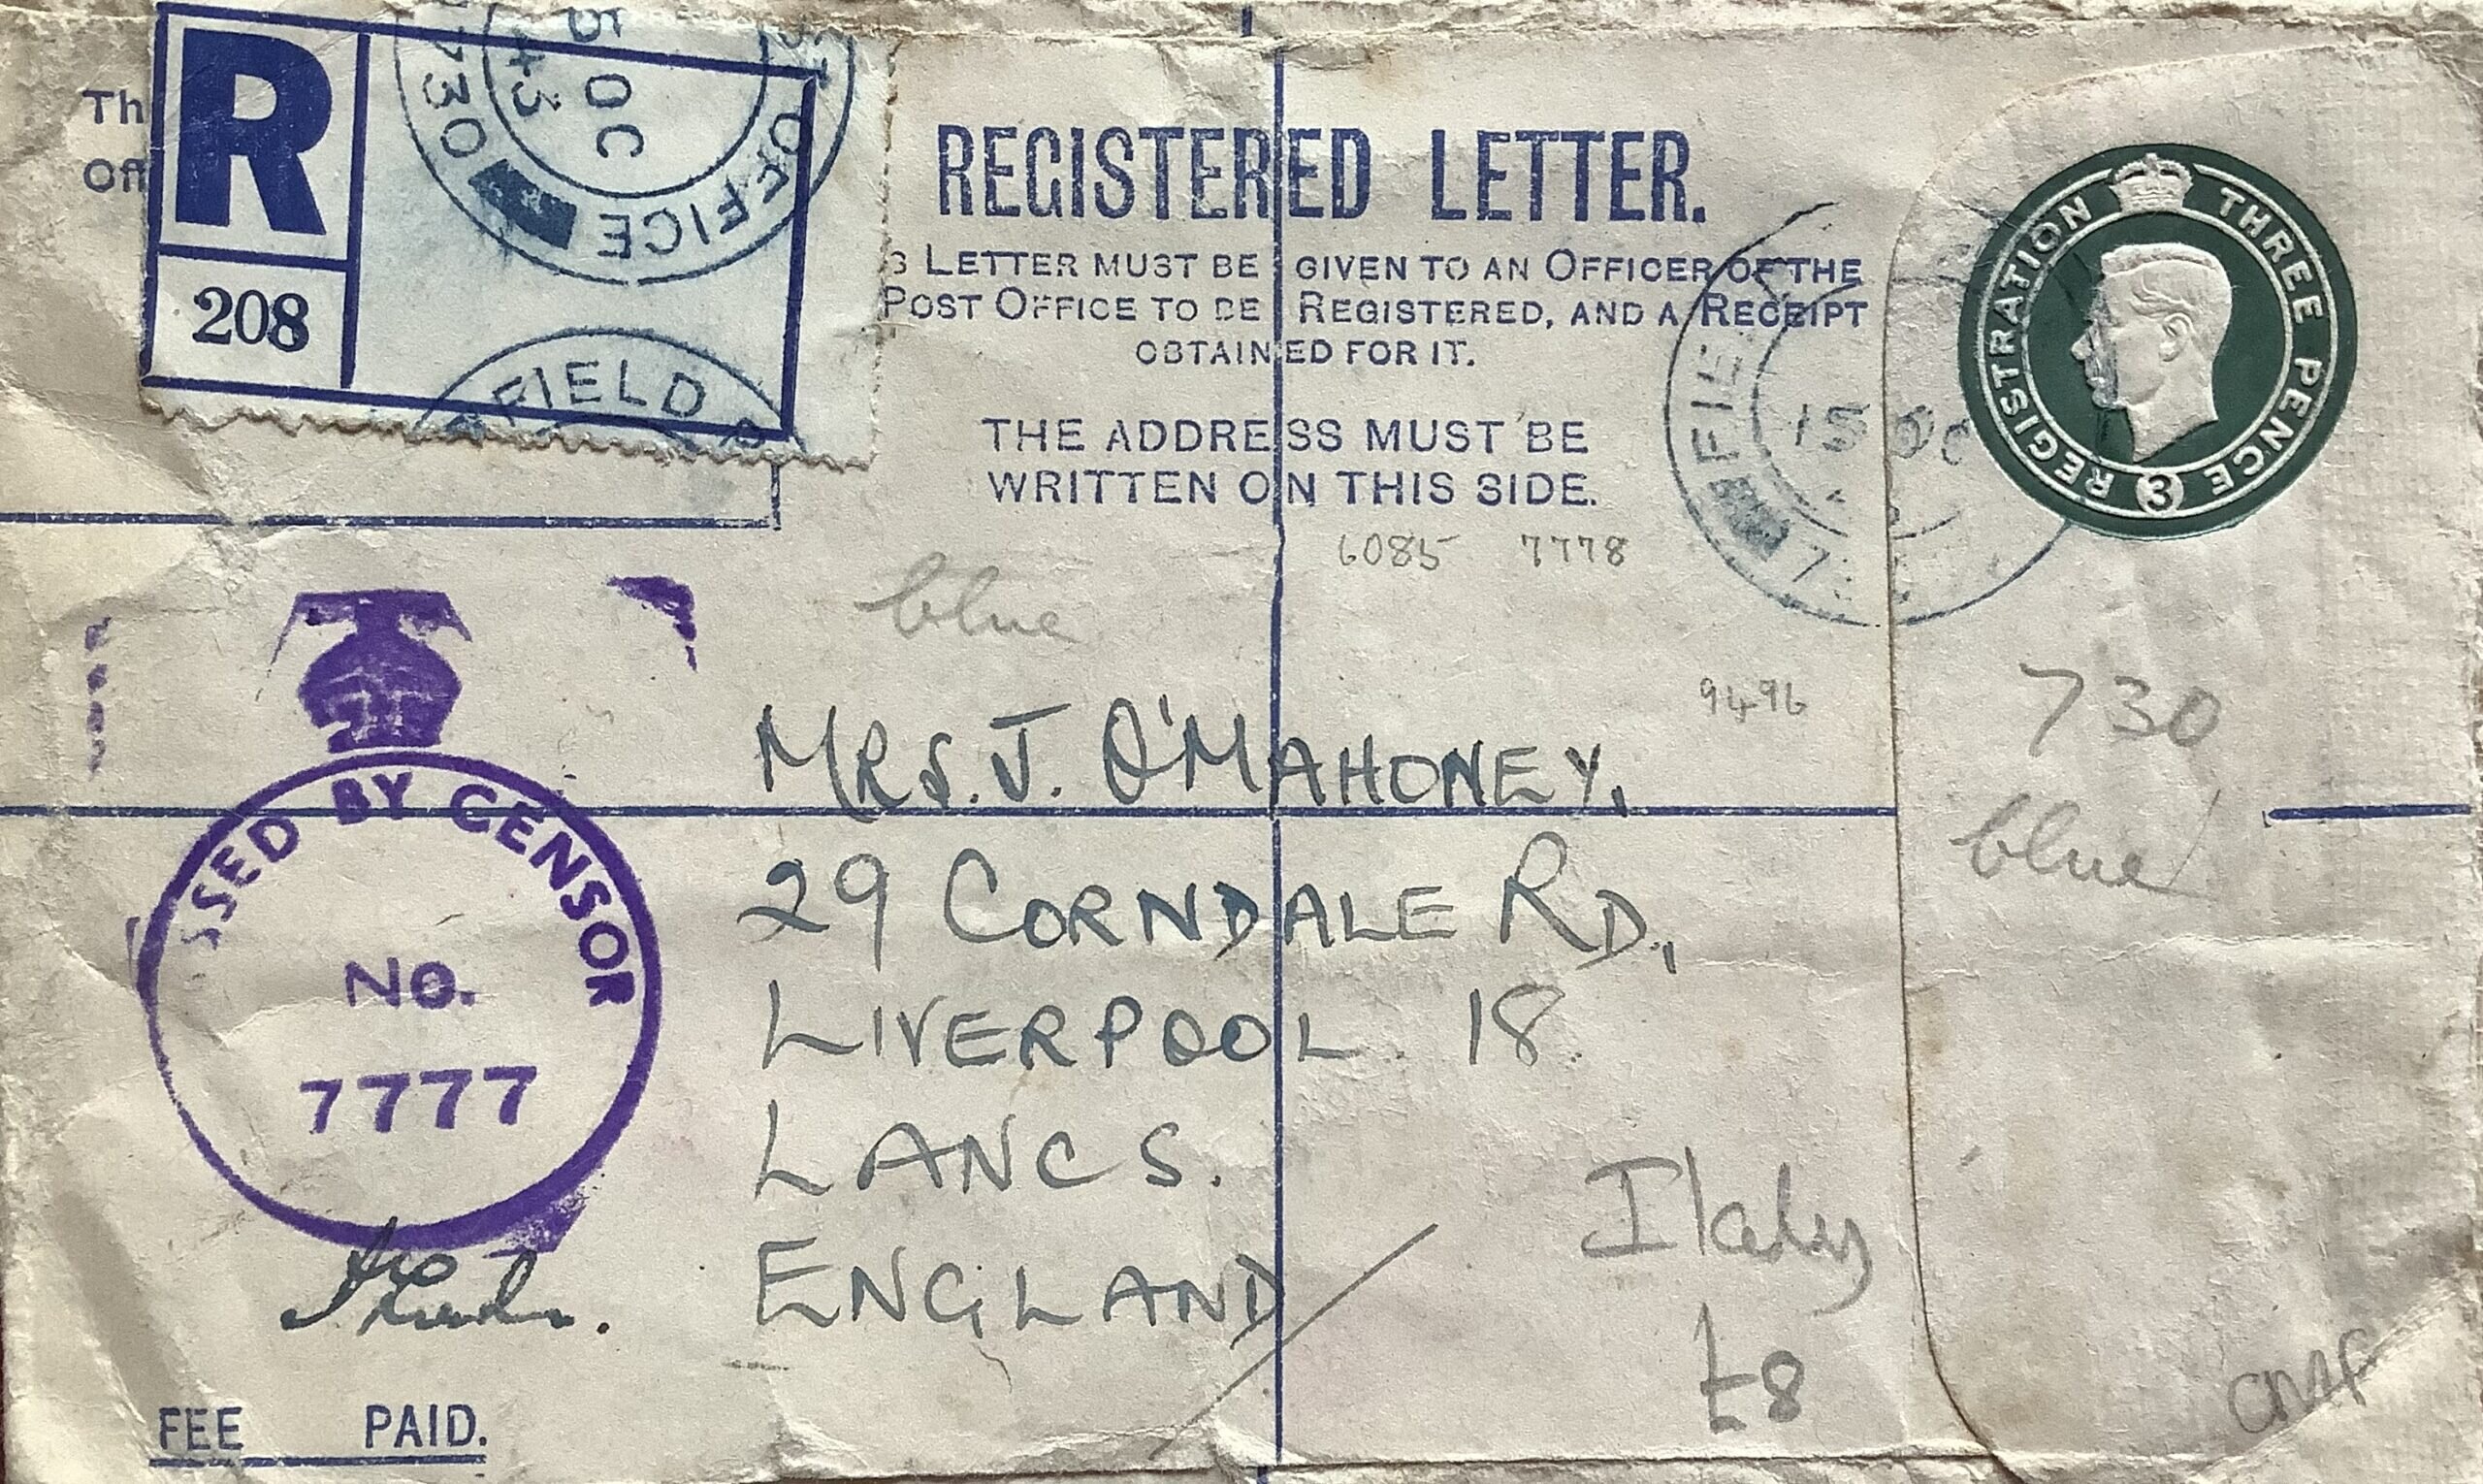 R
208
Th
Off
15 OC
43
OFFICE
730
FIELD
REGISTERED LETTER.
S LETTER MUST BE GIVEN TO AN OFFICER OF THE
POST OFFICE TO BE REGISTERED, AND A RECEIPT
OBTAINED FOR IT.
THE ADDRESS MUST BE
WRITTEN ON THIS SIDE.
REGISTRATION THREE PENCE
3
15 OC
6085 7778
blue
9496
730
blue
SSED BY CENSOR
NO.
7777
MRS. J. O'MAHONEY,
29 CORNDALE RD.,
LIVERPOOL. 18.
LANCS.
ENGLAND
Italy
£8
CMF
FEE PAID.